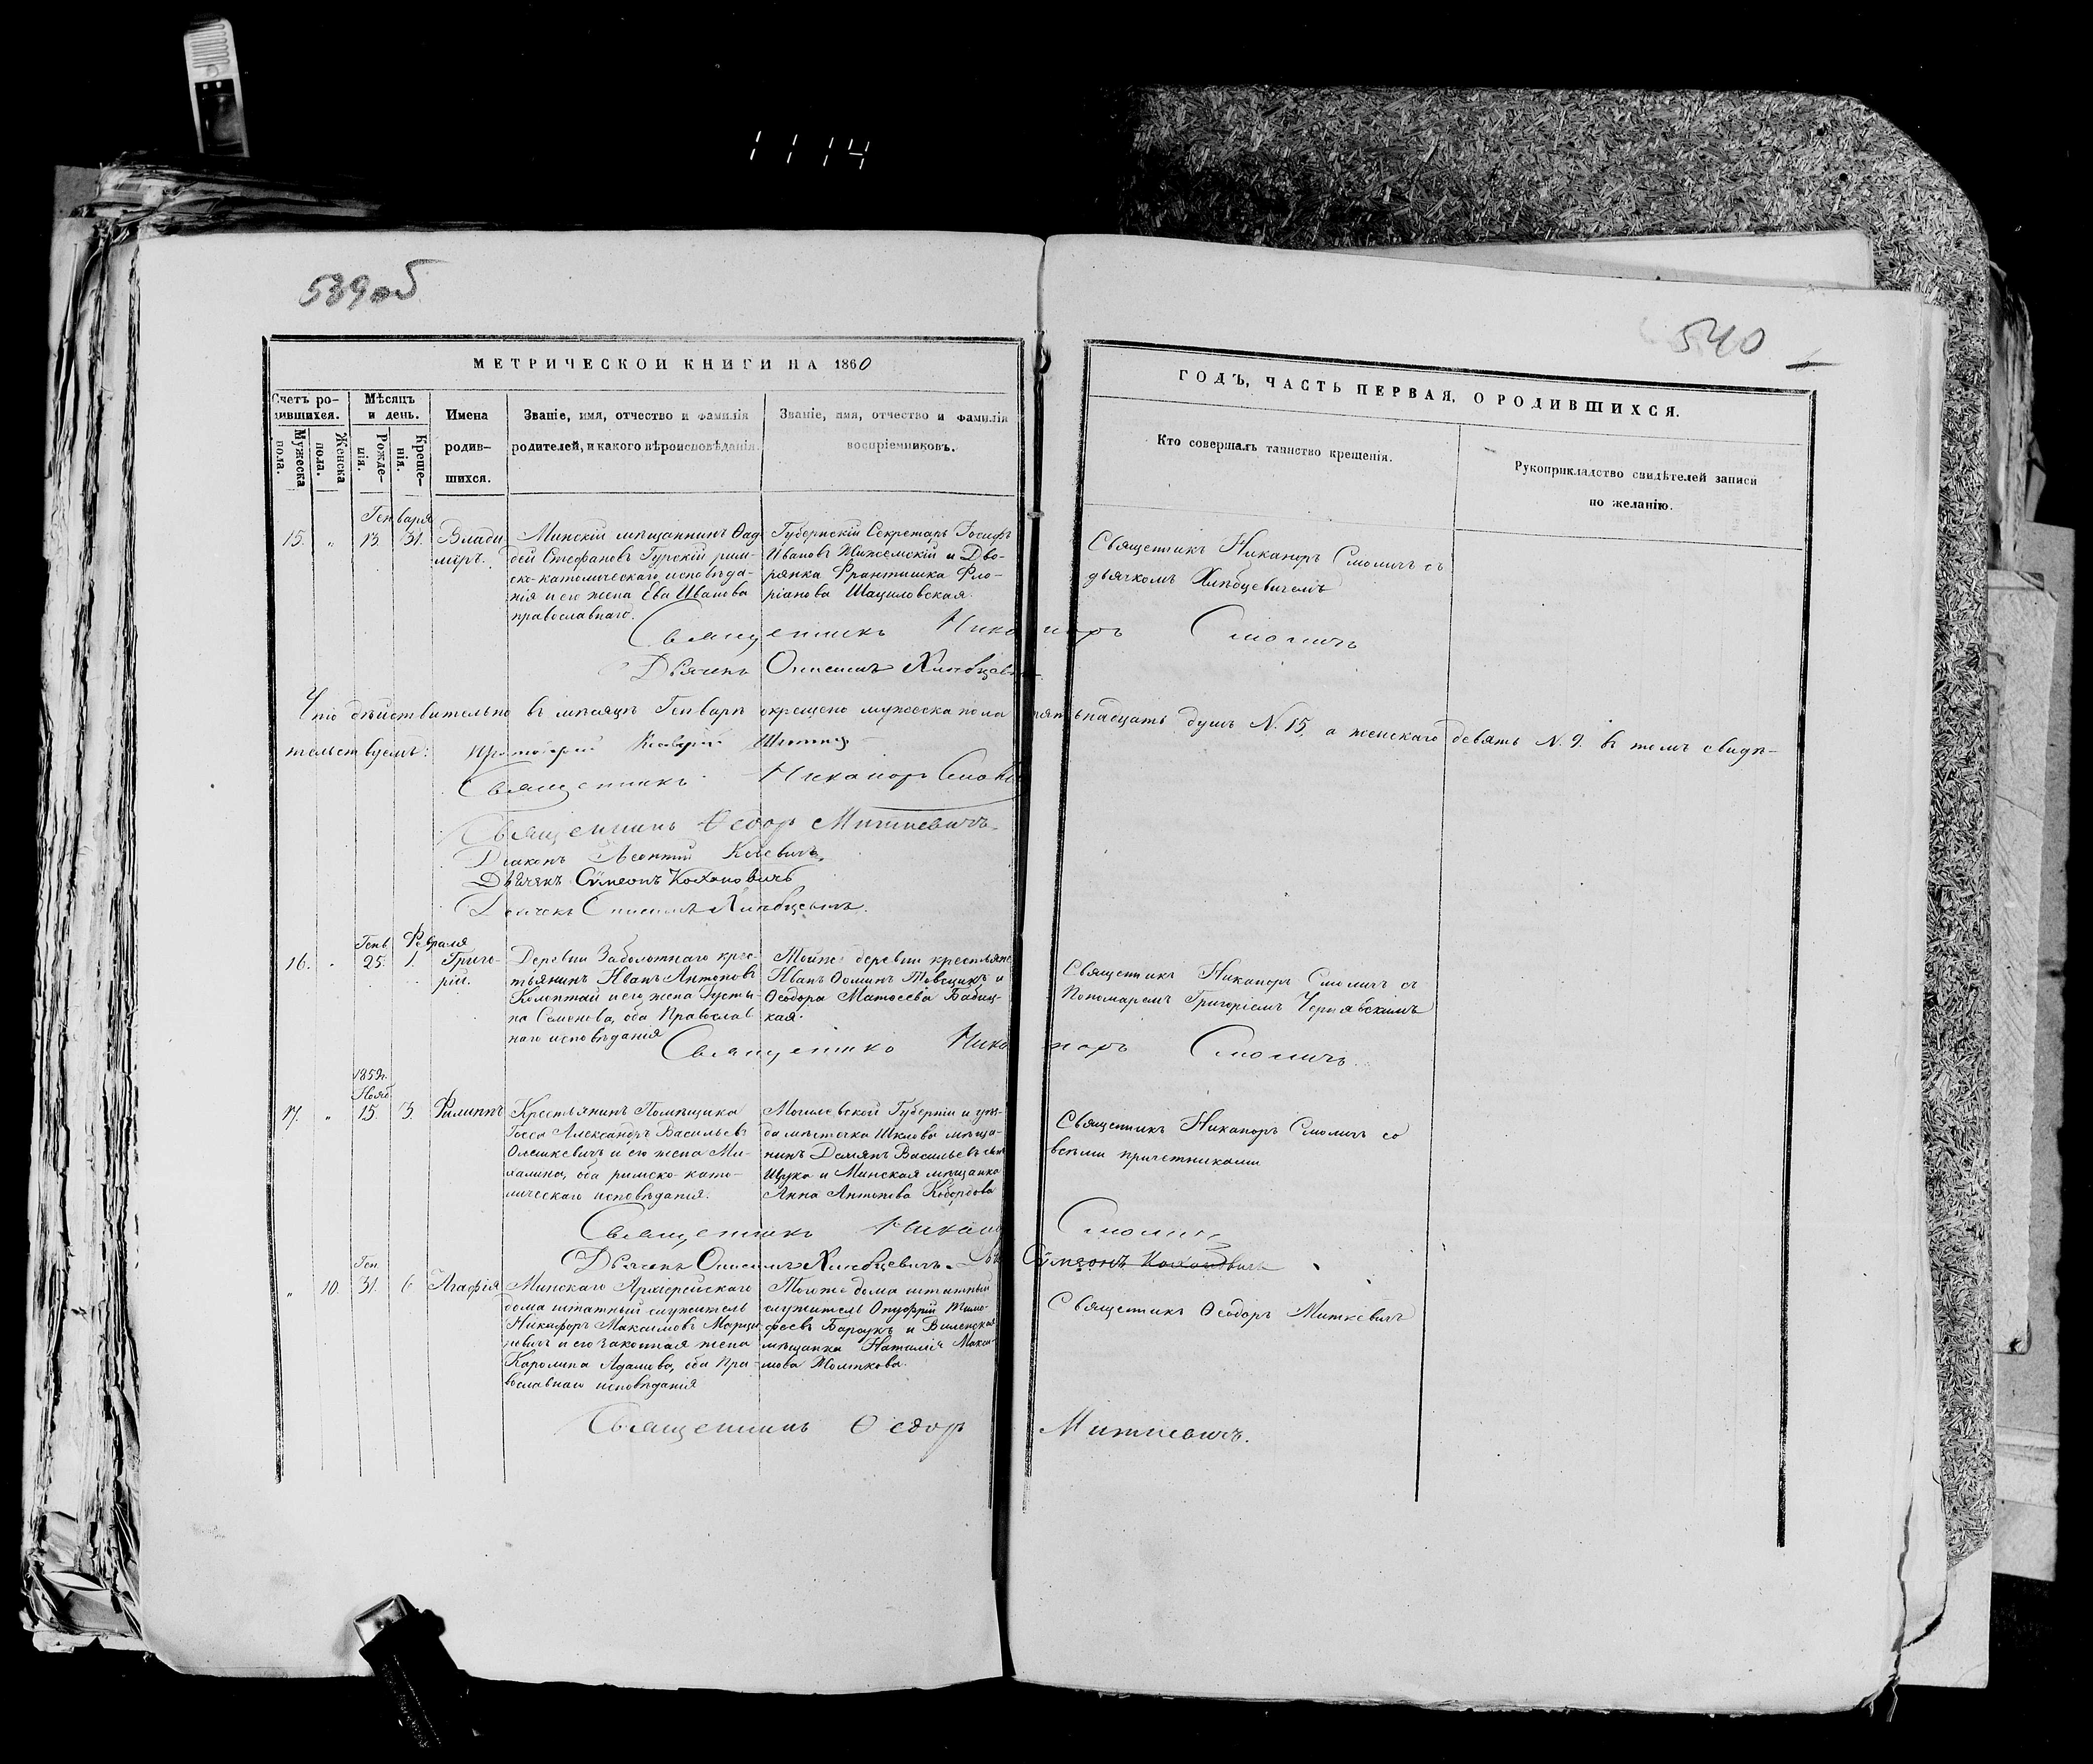 1114
539об
540
МЕТРИЧЕСКОЙ КНИГИ НА 1860
ГОДЪ, ЧАСТЬ ПЕРВАЯ, О РОДИВШИХСЯ.
Счетъ ро-
дившихся.
Мужеска
пола.
Женска
пола.
Мѣсяцъ
и день.
Рожде-
нія.
Креще-
нія.
Имена
родив-
шихся.
Званіе, имя, отчество и фамилія
родителей, и какого вѣроисповѣданія.
Званіе, имя, отчество и фамилія
воспріемниковъ.
Кто совершалъ таинство крещенія.
Рукоприкладство свидѣтелей записи
по желанію.
Генваря
15. „ 13. 31. Влади
міръ.
Минскій мѣщанинъ Ѳад
дей Стефановъ Гурскій рим-
ско-католическаго исповѣда-
нія и его жена Ева Иванова
православнаго.
Губернскій Секретарь Іосифъ
Ивановъ Нижемскій и Дво-
рянка Франтишка Фло-
ріанова Шациловская.
Священникъ Никаноръ Смоличъ съ
дьячкомъ Хлѣбцевичемъ
Священникъ Никаноръ Смоличъ
Дьячекъ Онисимъ Хлѣбцевичъ
Что дѣйствительно въ мѣсяцѣ Генварѣ окрещено мужеска пола пятьнадцать душъ N. 15, а женскаго девять N. 9. въ томъ свидѣ-
тельствуемъ:
Священникъ Никаноръ Смоличъ
Священникъ Ѳеодоръ Миткевичъ.
Діаконъ Леонтій
Дьячекъ Сѵмеонъ Кохановичъ
Дьячекъ Онисимъ Хлѣбцевичъ.
Генв. Февраля
16. „ 25. 1. Григо-
рій.
Деревни Заболотнаго крес-
тьянинъ Иванъ Антоновъ
и его жена Густы-
на Семенова, оба Православ
наго исповѣданія
Тойже деревни крестьяне
Иванъ Ѳоминъ и
Ѳеодора Матѳеева Бабиц-
кая.
Священникъ Никаноръ Смоличъ съ
Пономаремъ Григоріемъ Чернявскимъ
Священникъ Никаноръ Смоличъ.
1859г.
Нояб.
17. „ 15. 3. Филиппъ
Крестьянинъ Помѣщика
Госсa Александръ Васильевъ
Олешкевичъ и его жена Ми-
халина, оба римско-като-
лическаго исповѣданія.
Могилевской Губерніи и уѣз-
да мѣстечка Шклова мѣща-
нинъ Демянъ Васильевъ сынъ
Щука и Минская мѣщанка
Анна Антонова
Священникъ Никаноръ Смоличъ со
всѣми причетниками
Священникъ Никаноръ Смоличъ
Дьячекъ Онисимъ Хлѣбцевичъ. Дьяч Сѵмеонъ Кохановичъ
Ген.
„ 10. 31. 6 Агафія
Минскаго Архіерейскаго
дома штатный служитель
Никифоръ Максимовъ Марци
новичъ и его законная жена
Каролина Адамова, оба Пра-
вославнаго исповѣданія
Тогоже дома штатный
служитель Онуфрій Тимо-
феевъ Бараукъ и Виленская
мѣщанка Наталія Макси-
мова Толпыкова.
Священникъ Ѳеодоръ Миткевичъ
Священникъ Ѳеодоръ Миткевичъ.